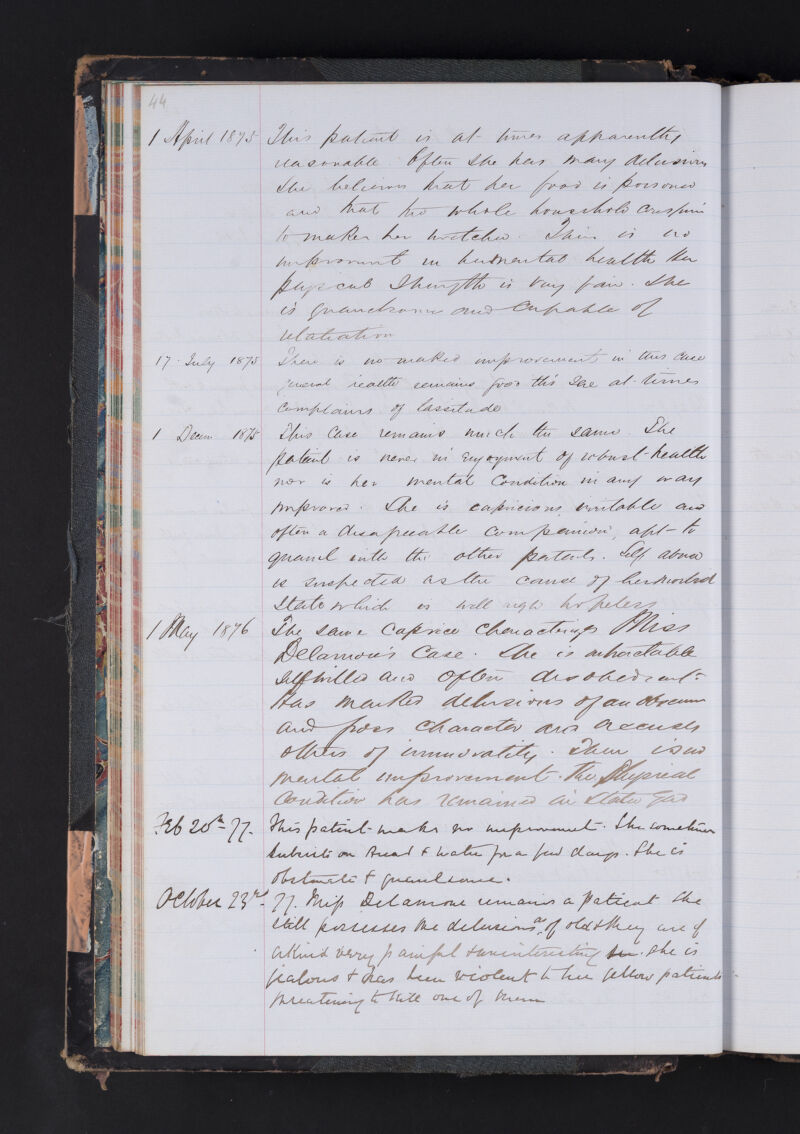 44
1 April 1875 This patient is at times apparently
reasonable. Often she has many delusions
She believes that her food is poisoned
and that the whole household conspire
to make her wretched. There is no
improvement in her mental health Her
physical strength is very fair. She
is quarrelsome and capable of
retaliation
17 July 1875 There is no marked improvement in this case
general health remains good tho' she at times
complains of lassitude
1 Decem 1875 This case remains much the same. The
patient is never in enjoyment of robust health
nor is her mental condition in any way
improved. She is capricious, irritable and
often a disagreeable companion, apt to
quarrel with the other patients. Self abuse
is suspected as the cause of her morbid
state which is well nigh hopeless
1 May 1876 The same caprice characterizes Miss
Delamore's case. She is intractable
selfwilled and often disobedient
has marked delusions of an obscene
and gross character and accuses
others of immorality. There is no
mental improvement. the Physical
condition has remained in statu quo
Feb 20th 77. This patient makes no improvement. She sometimes
subsists on bread & water for a few days. She is
obstinate & quarrelsome.
October 23rd. 77. Miss Delamore remains a patient she
still possesses the delusions of old & they are of
a kind very painful & uninteresting. She is
jealous & has been violent to her fellow patients
threatening to kill one of them